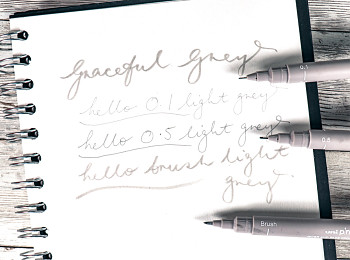 Graceful Grey
hello 0.1 light grey
hello 0.5 light grey
hello brush light
grey
0.1
Brush
uni pin